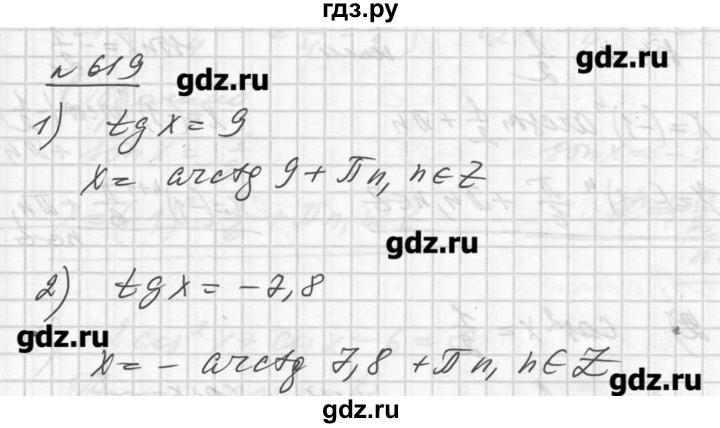 гдз.ру
№ 619
gdz.ru
1) tg x = 9
gdz.ru
x = arctg 9 + Пn, n∈Z
gdz.ru
2) tg x = -7,8
gdz.ru
x = - arctg 7,8 + Пn, n∈Z
gdz.ru
gdz.ru